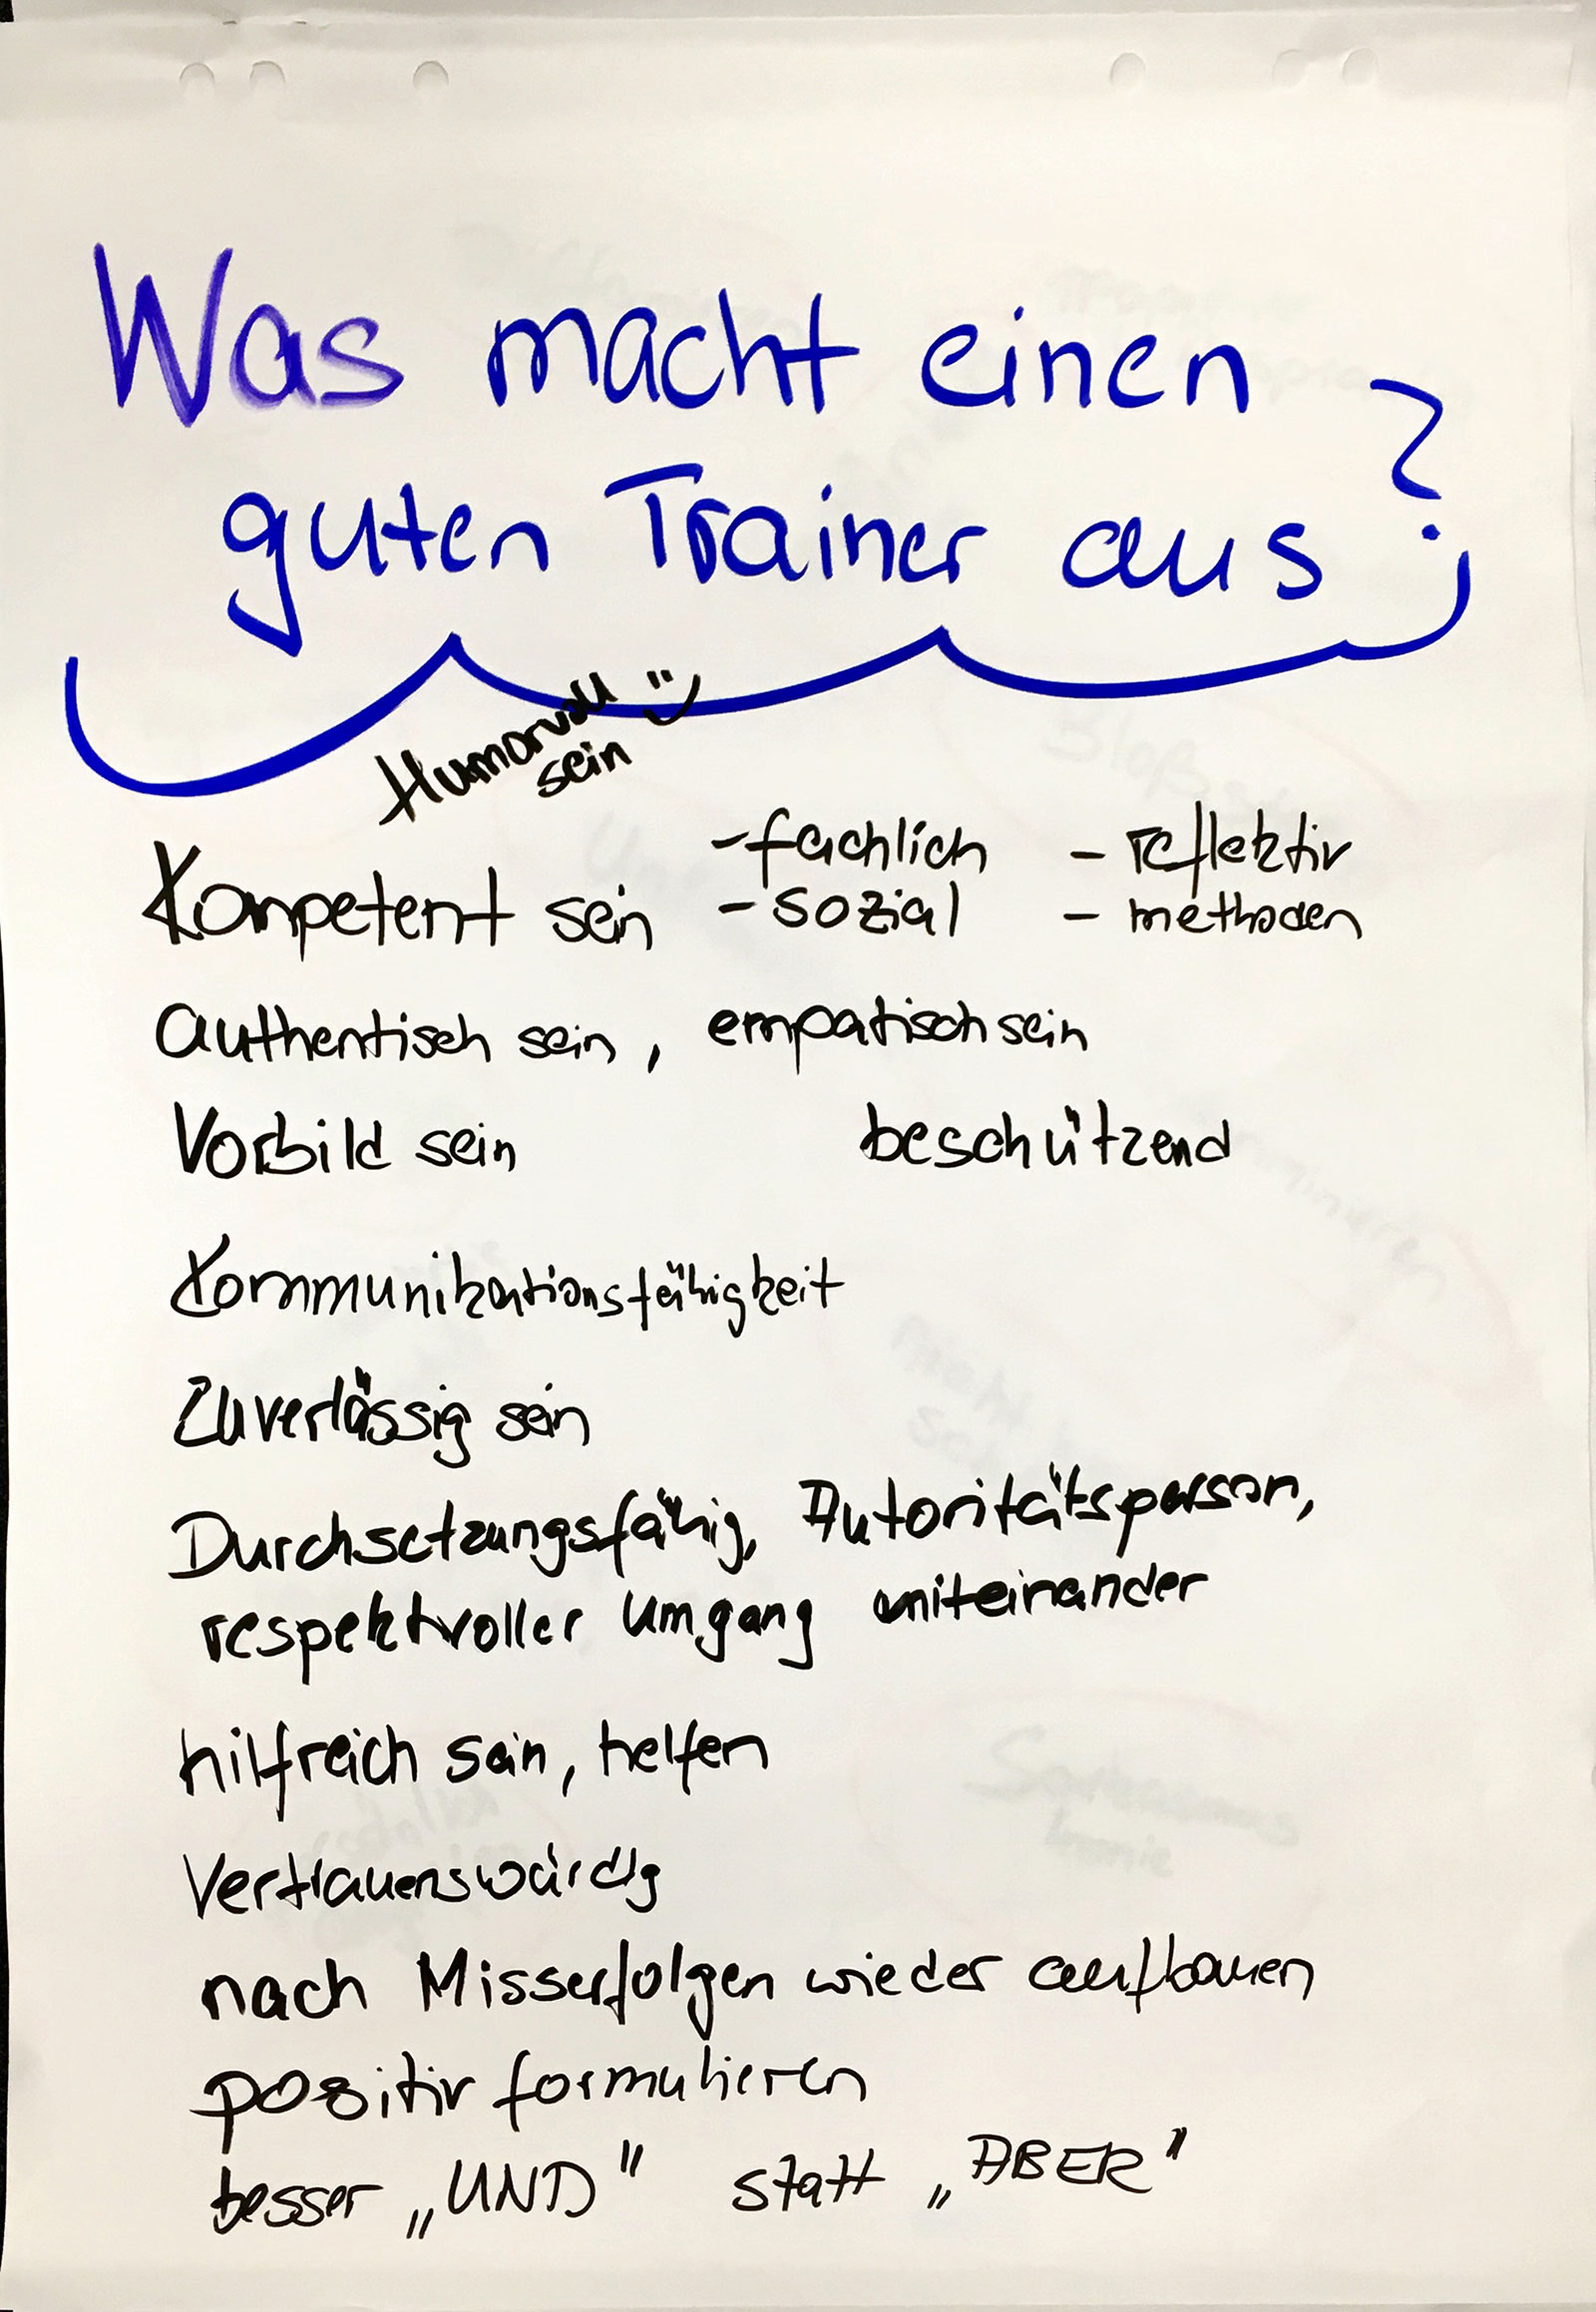 Was macht einen
guten Trainer aus?
Humorvoll
sein
Kompetent sein - fachlich - reflektiv
- sozial - methoden
authentisch sein, empatisch sein
Vorbild sein beschützend
Kommunikationsfähigkeit
Zuverlässig sein
Durchsetzungsfähig, Autoritätsperson,
respektvoller Umgang miteinander
hilfreich sein, helfen
Vertrauenswürdig
nach Misserfolgen wieder aufbauen
positiv formulieren
besser „UND" statt „ABER"